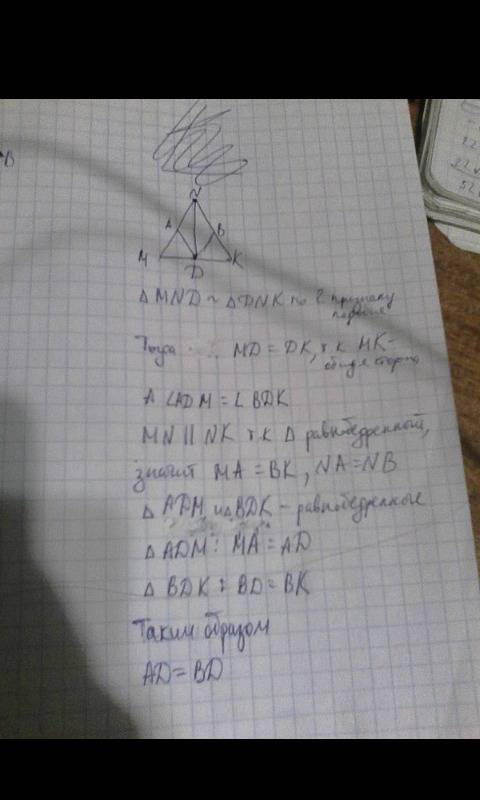 В
N
A B
M D K
Δ MND ~ Δ DNK по 2 признаку
Тогда MD = DK, т.к MK -
общая сторна
А ∠ADM = ∠ BDK
MN || NK т.к Δ равнобедренный,
значит MA = BK, NA = NB
Δ ADM и Δ BDK - равнобедренные
Δ ADM : MA = AD
Δ BDK : BD = BK
Таким образом
AD = BD